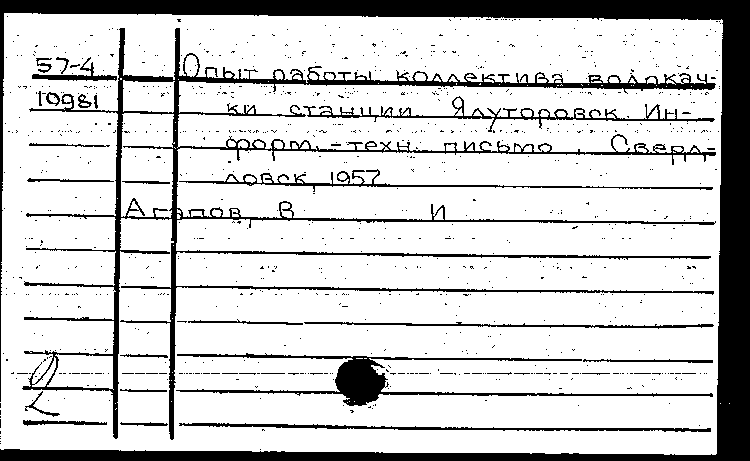 57-4 Опыт работы коллектива водокач-
10981 ки станции Ялуторовск. Ин-
форм.-техн. письмо. Сверд-
ловск, 1957
Агапов, В И
2